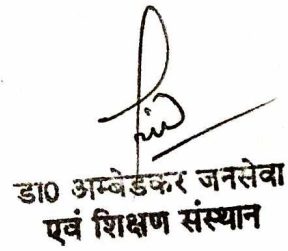 डा0 अम्बेडकर जनसेवा
एवं शिक्षण संस्थान